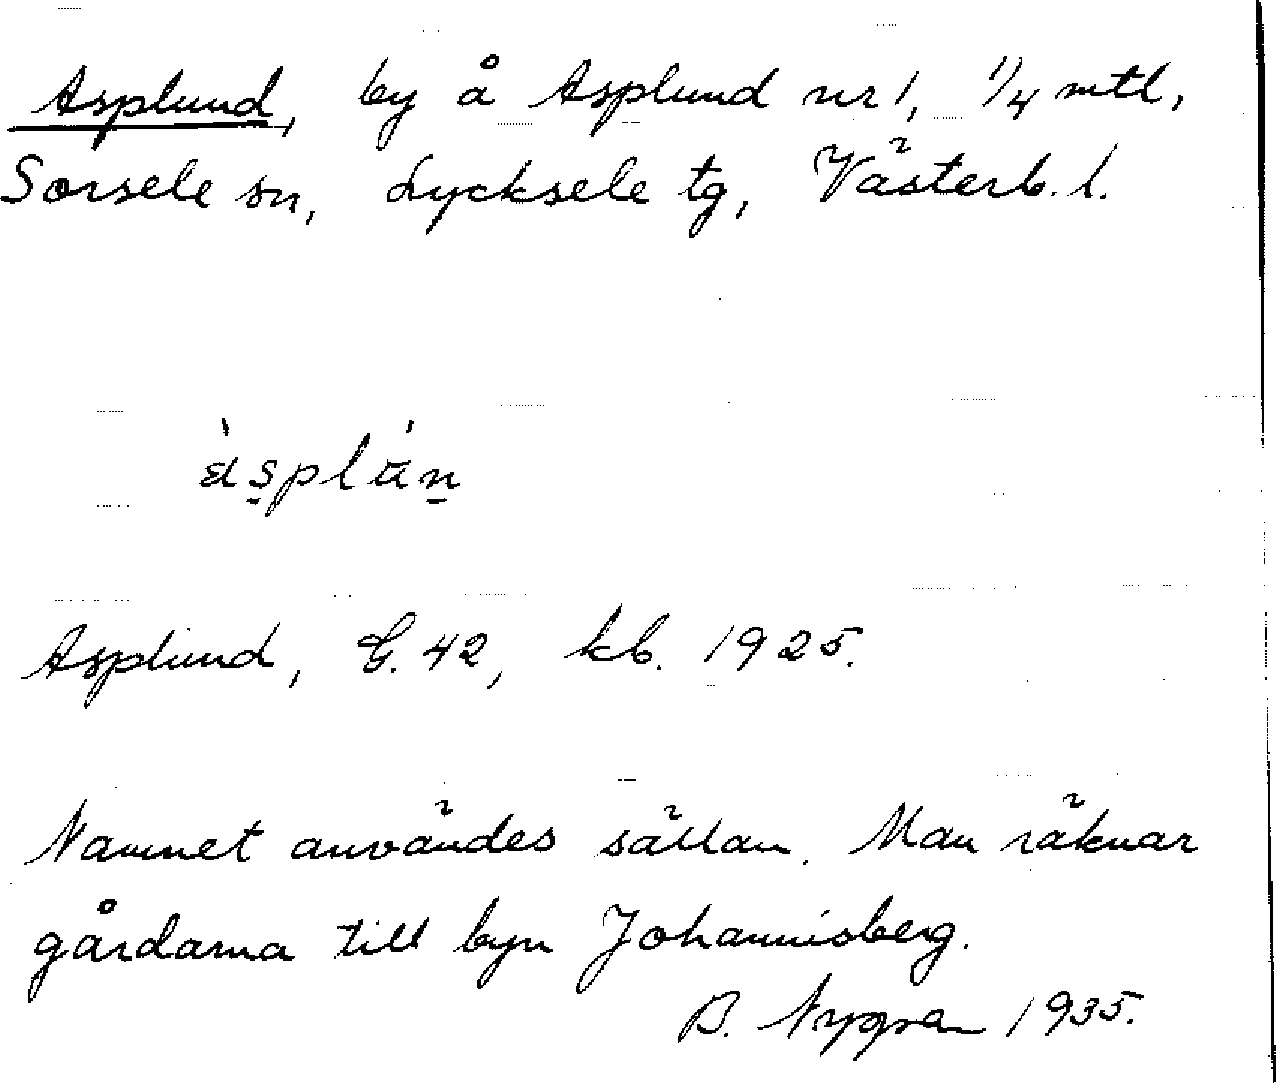 Asplund, by å Asplund nr 1, 1/4 mtl,
Sorsele sn, Lycksele tg, Västerb. l.
Asplund, G. 42, kb. 1925.
Namnet användes sällan. Man räknar
gårdarna till byn Johannisberg.
B. Nygren 1935.